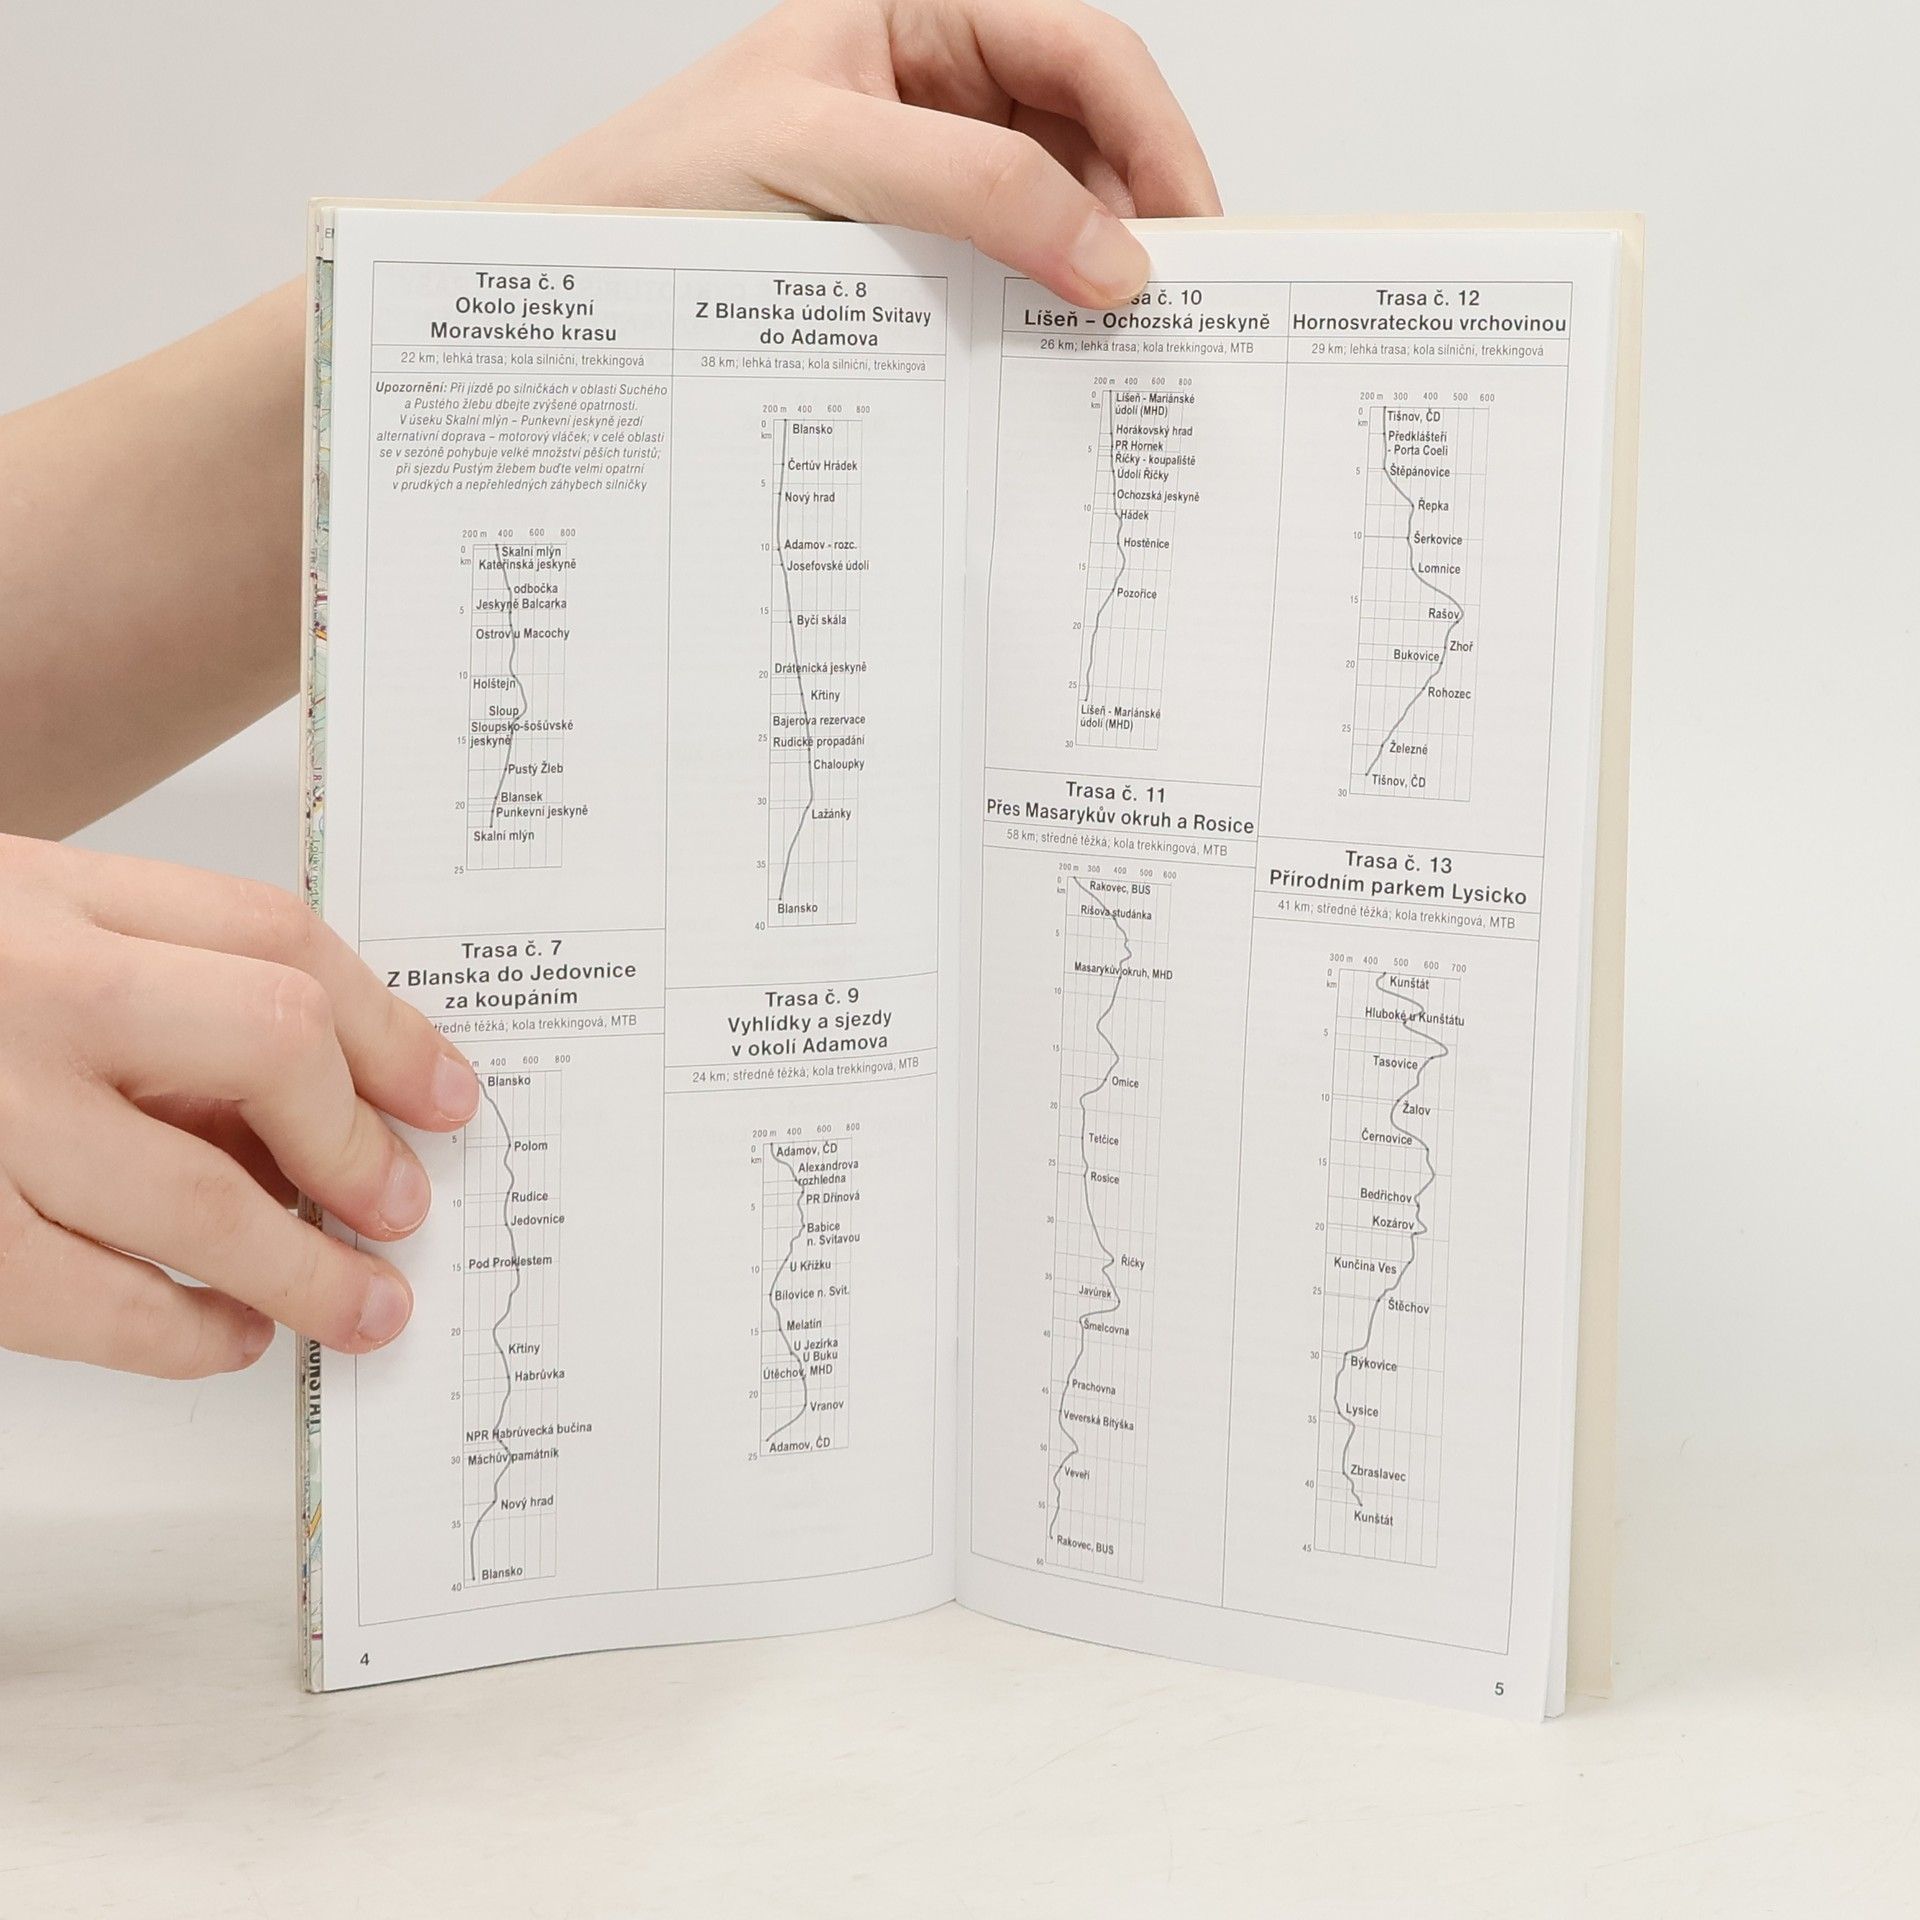 Trasa č. 6
Okolo jeskyní
Moravského krasu
22 km; lehká trasa; kola silniční, trekkingová
Upozornění: Při jízdě po silničkách v oblasti Suchého
a Pustého žlebu dbejte zvýšené opatrnosti.
V úseku Skalní mlýn – Punkevní jeskyně jezdí
alternativní doprava – motorový vláček; v celé oblasti
se v sezóně pohybuje velké množství pěších turistů;
při sjezdu Pustým žlebem buďte velmi opatrní
v prudkých a nepřehledných záhybech silničky
200 m 400 600 800
0
km
Skalní mlýn
Kateřinská jeskyně
odbočka
5 Jeskyně Balcarka
Ostrov u Macochy
10
Holštejn
Sloup
Sloupsko-šošůvské
15 jeskyně
Pustý Žleb
Blansek
20
Punkevní jeskyně
Skalní mlýn
25
Trasa č. 7
Z Blanska do Jedovnice
za koupáním
tředně těžká; kola trekkingová, MTB
m 400 600 800
Blansko
5
Polom
10
Rudice
Jedovnice
15 Pod Proklestem
20
Křtiny
Habrůvka
25
NPR Habrůvecká bučina
30 Máchův památník
Nový hrad
35
Blansko
40
Trasa č. 8
Z Blanska údolím Svitavy
do Adamova
38 km; lehká trasa; kola silniční, trekkingová
200 m 400 600 800
0
km
Blansko
Čertův Hrádek
5
Nový hrad
10 Adamov - rozc.
Josefovské údolí
15
Býčí skála
20 Drátenická jeskyně
Křtiny
Bajerova rezervace
25
Rudické propadání
Chaloupky
30
Lažánky
35
Blansko
40
Trasa č. 9
Vyhlídky a sjezdy
v okolí Adamova
24 km; středně těžká; kola trekkingová, MTB
200 m 400 600 800
0
km
Adamov, ČD
Alexandrova
rozhledna
PR Dřínová
5
Babice
n. Svitavou
10 U Křížku
Bílovice n. Svit.
15
Melatín
U Jezírka
U Buku
Útěchov, MHD
20
Vranov
Adamov, ČD
25
4
sa č. 10
Líšeň – Ochozská jeskyně
26 km; lehká trasa; kola trekkingová, MTB
200 m 400 600 800
0
km
Líšeň - Mariánské
údolí (MHD)
Horákovský hrad
5 PR Hornek
Říčky - koupaliště
Údolí Říčky
Ochozská jeskyně
10 Hádek
Hostěnice
15
Pozořice
20
25
Líšeň - Mariánské
údolí (MHD)
30
Trasa č. 11
Přes Masarykův okruh a Rosice
58 km; středně těžká; kola trekkingová, MTB
200 m 300 400 500 600
0
km
Rakovec, BUS
Ríšova studánka
5
Masarykův okruh, MHD
10
15
Omice
20
Tetčice
25
Rosice
30
Říčky
35
Javůrek
Šmelcovna
40
Prachovna
45
Veverská Bítýška
50
Veveří
55
Rakovec, BUS
60
Trasa č. 12
Hornosvrateckou vrchovinou
29 km; lehká trasa; kola silniční, trekkingová
200 m 300 400 500 600
0
km
Tišnov, ČD
Předklášteří
- Porta Coeli
5 Štěpánovice
Řepka
10 Šerkovice
Lomnice
15
Rašov
Zhoř
Bukovice
20
Rohozec
25
Železné
Tišnov, ČD
30
Trasa č. 13
Přírodním parkem Lysicko
41 km; středně těžká; kola trekkingová, MTB
300 m 400 500 600 700
0
km
Kunštát
Hluboké u Kunštátu
5
Tasovice
10
Žalov
Černovice
15
Bedřichov
20
Kozárov
Kunčina Ves
25
Štěchov
30
Býkovice
Lysice
35
Zbraslavec
40
Kunštát
45
5